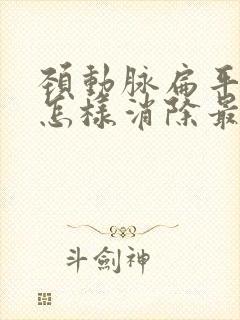 頸動脈扁平
怎樣消除最
斗劍神